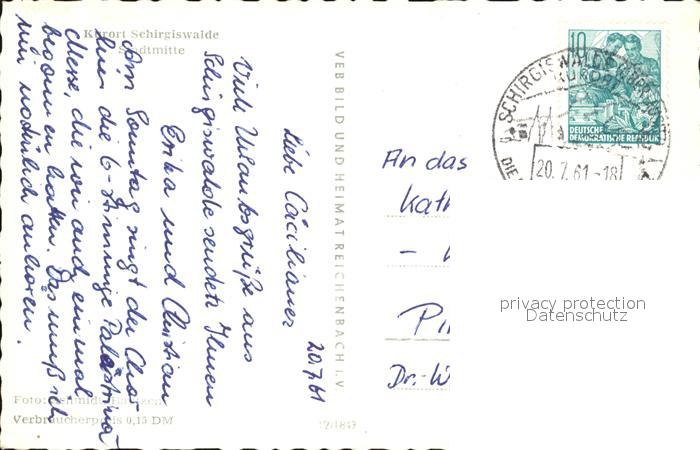 Kurort Schirgiswalde
Stadtmitte
20.7.61
Liebe Cäcilianer
Viele Urlaubsgrüße aus
Schirgiswalde sendete Ihnen
Erika und Christian
Am Sonntag singt der Chor
hier die 6-stimmige Palestrina
Messe, die wir auch einmal
begonnen hatten. Das muß ich
mir natürlich anhören.
Foto: Schmidt, Bautzen
Verbraucherpreis 0,15 DM
VEB BILD UND HEIMAT REICHENBACH I. V.
10
DEUTSCHE
DEMOKRATISCHE REPUBLIK
SCHIRGISWALDE
KURORT
20.7.61-18
An das
Kath
Dr.-W
privacy protection
Datenschutz